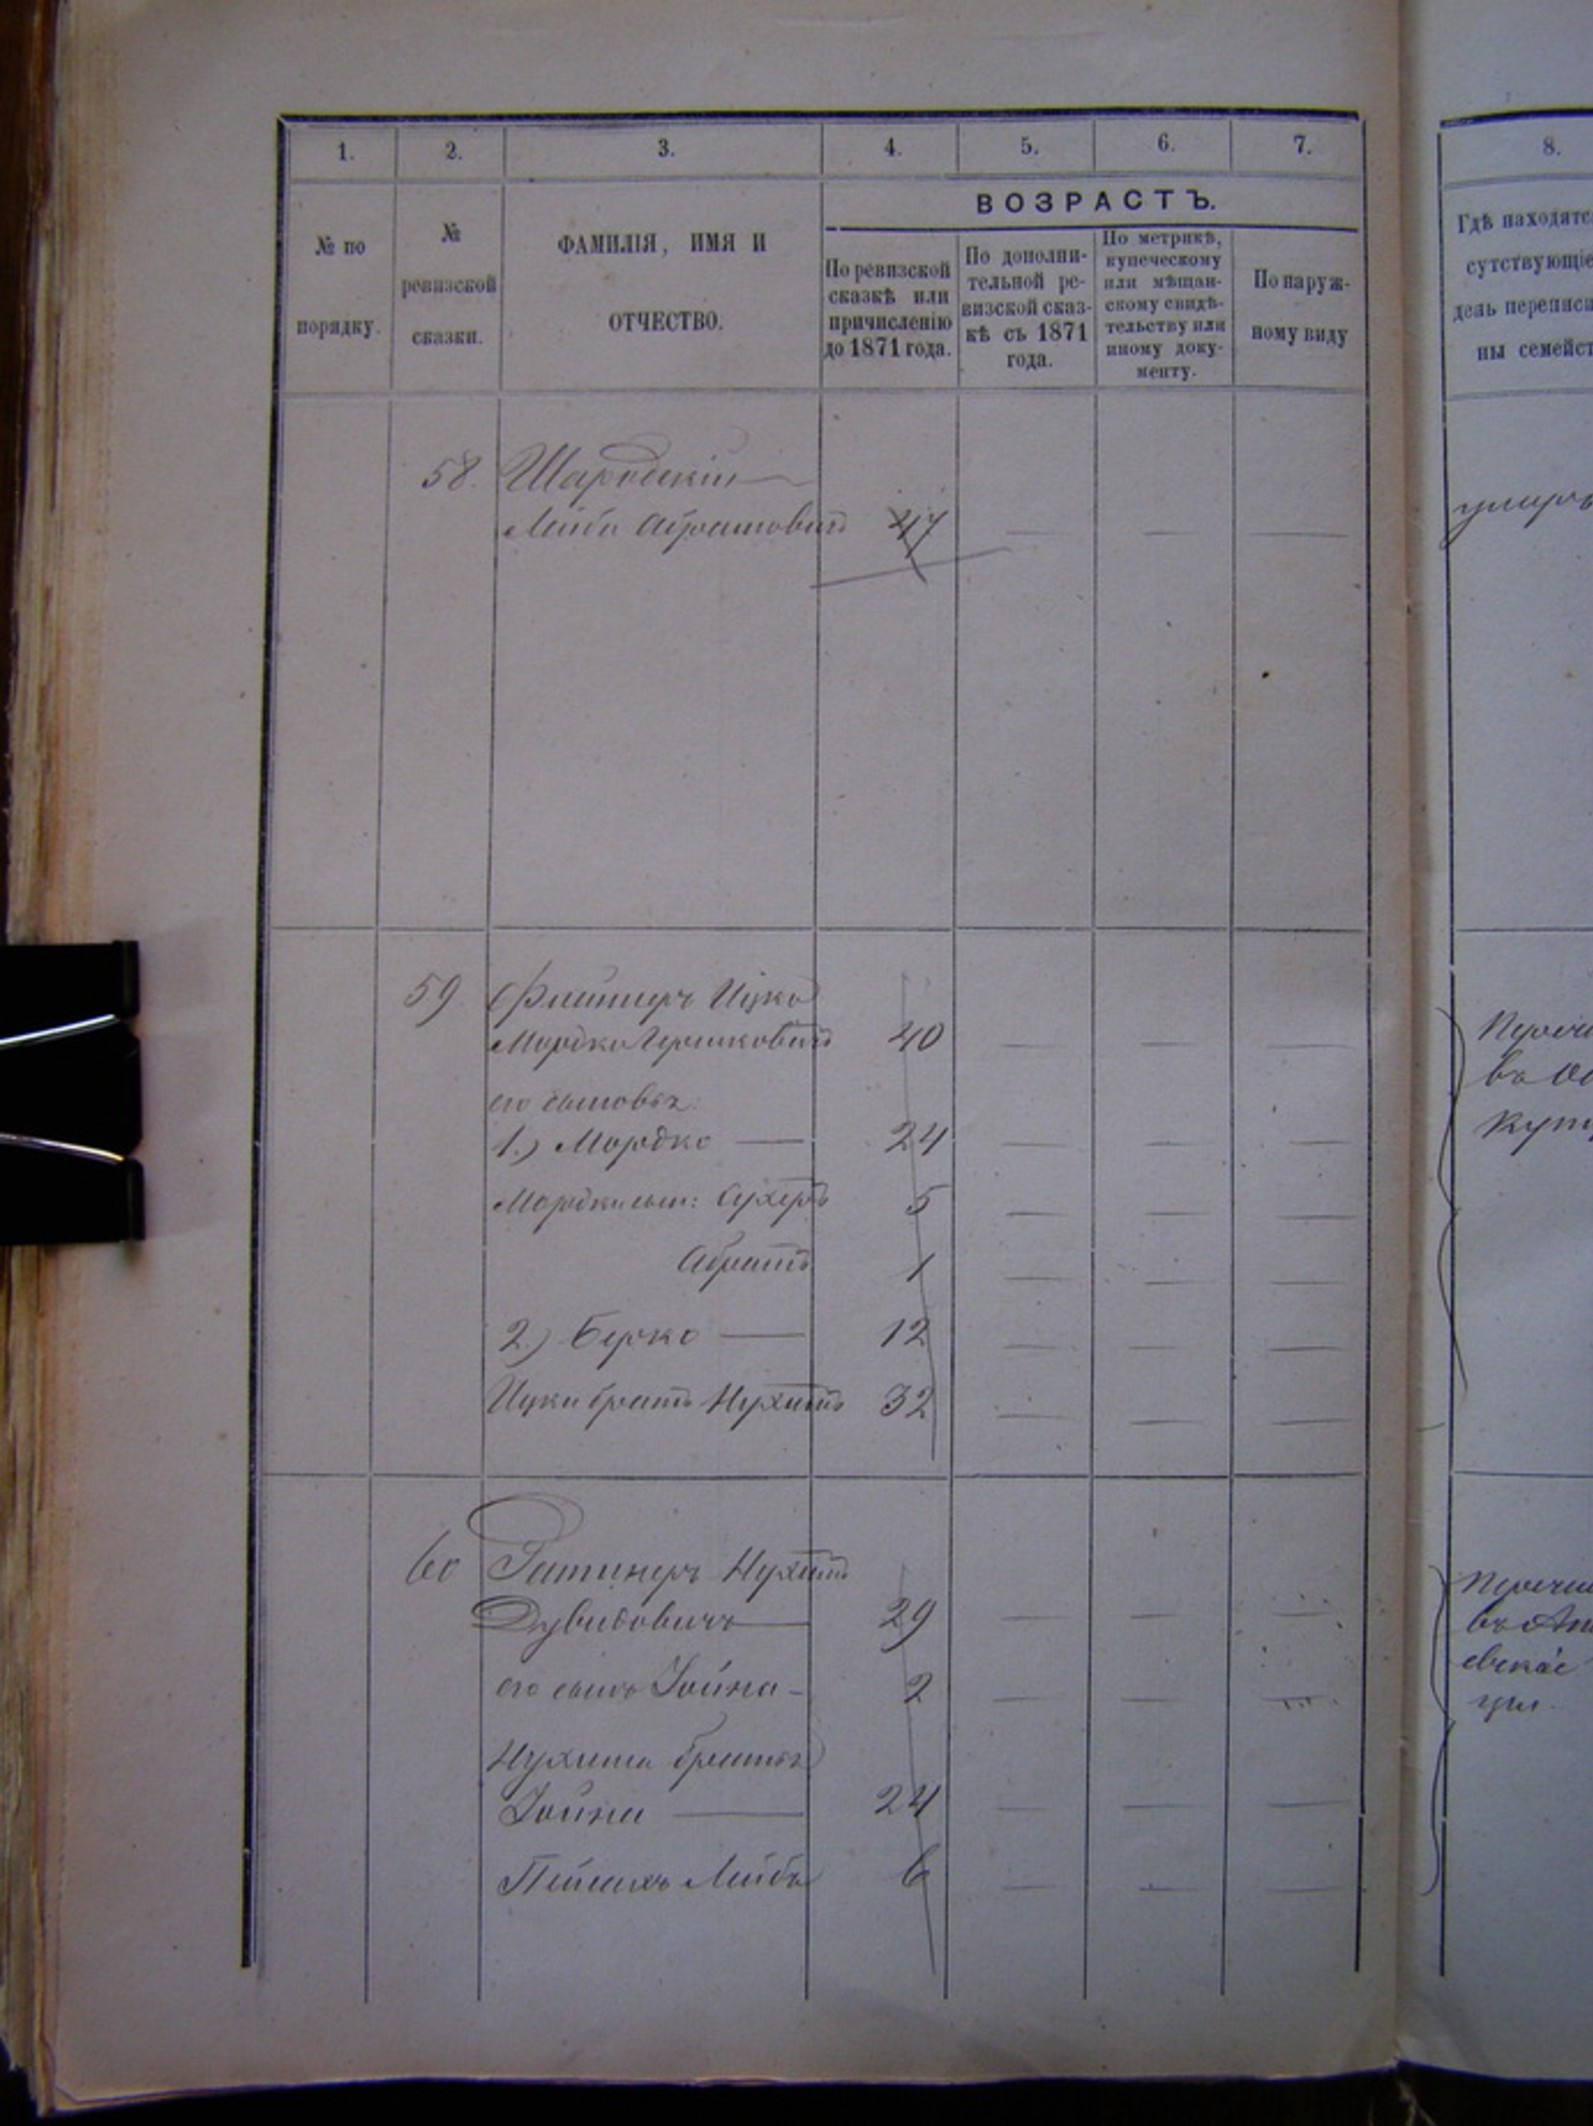 1. 2. 3. 4. 5. 6. 7. 8.
№ по порядку.
№ ревизской сказки.
ФАМИЛІЯ, ИМЯ И
ОТЧЕСТВО.
ВОЗРАСТЪ.
По ревизской
сказкѣ или
причисленію
до 1871 года.
По дополни-
тельной ре-
визской сказ-
кѣ съ 1871
года.
По метрикѣ,
купеческому
или мѣщан-
скому свидѣ-
тельству или
иному доку-
менту.
По наруж-
ному виду
Гдѣ находятс
сутствующіе
день переписи
ны семейст
58. Шародскій
Лейба Абрамовичъ 47
умеръ
59. Ицко
Мордко Гершковичъ 40
его сыновья:
1.) Мордко 24
Мордки сын: Сухеръ 5
Абрамъ 1
2.) Берко 12
Ицки братъ Нухимъ 32
Перечи
въ
куп
60 Ратнеръ Нухимъ
Дувидовичъ 29
его сынъ Іойна 2
Нухима братья
Іойна 24
Лейба 6
Перечи
въ Ан
евское